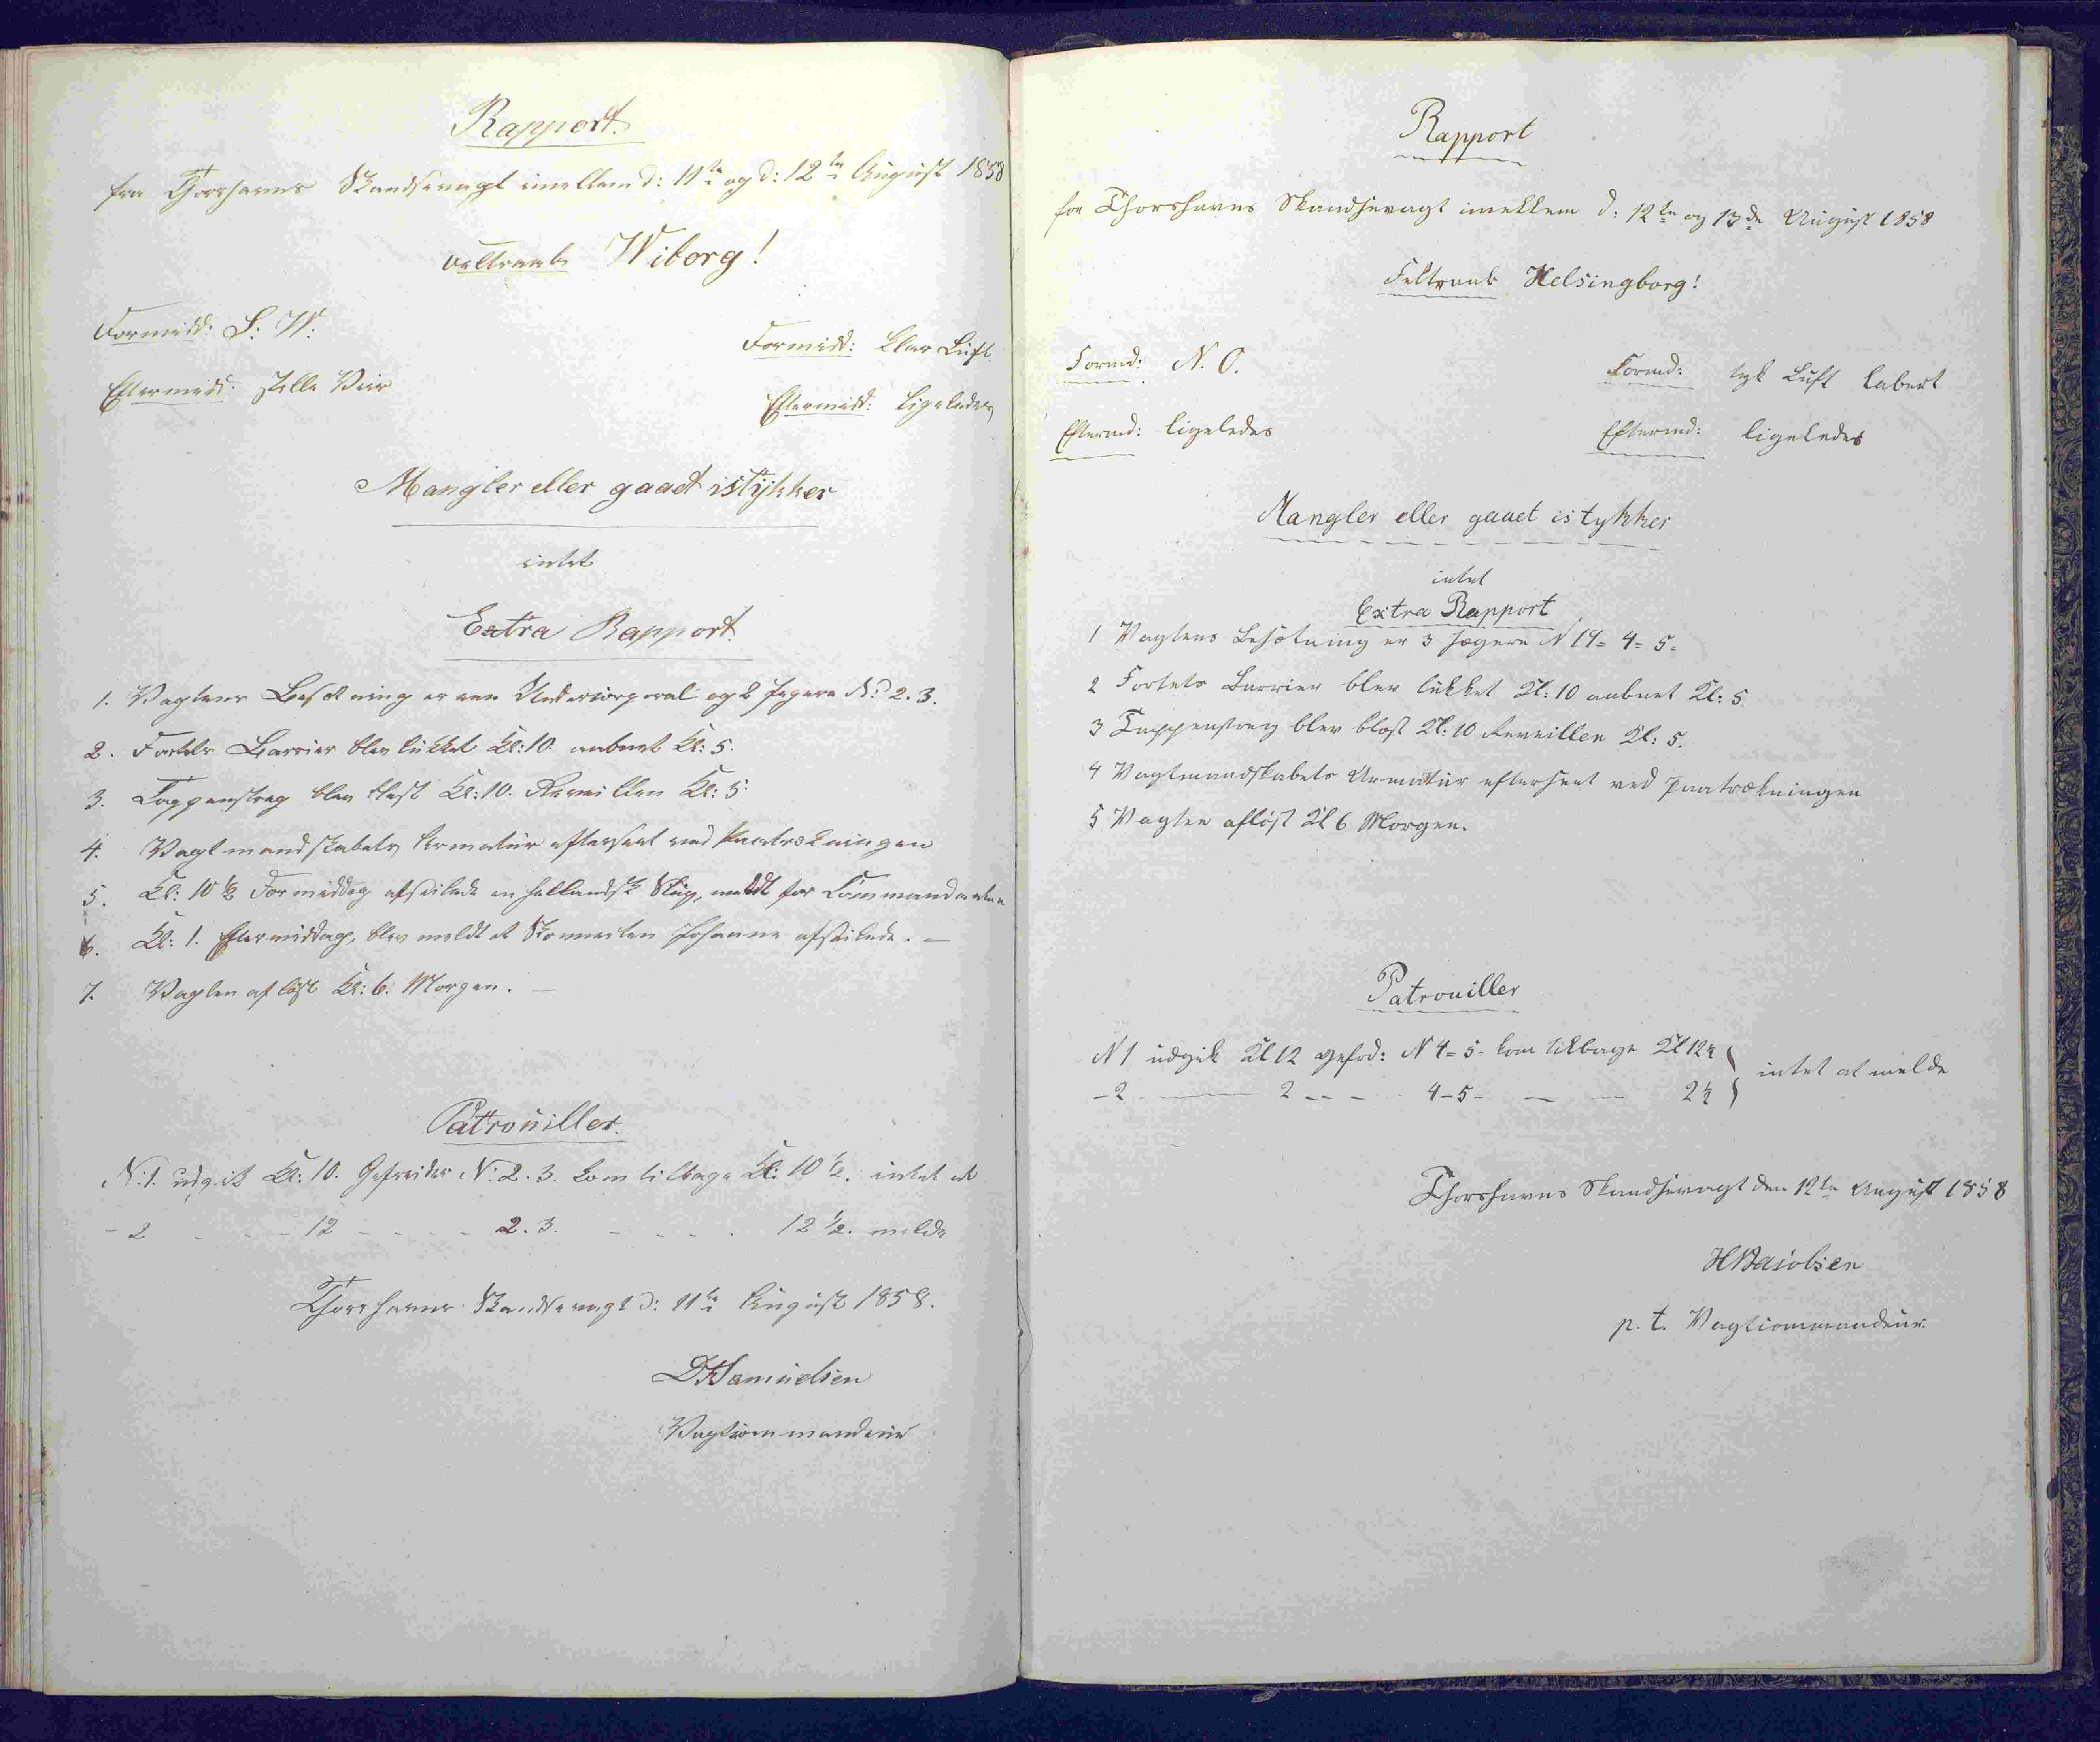 Rapport.
fra Thorshavns Skandsevagt imellem d: 11te og d: 12te August 1858
Feltraab Wiborg!
Formidd: S: W:
Formidd: klar Luft.
Eftermidd: stille Veir
Eftermidd: ligeledes
Mangler eller gaaet istÿkker
intet
Extra Rapport.
1. Vagtens Besætning er een Undercorporal og 2 Jægere No: 2. 3.
2. Fortets Barrier blev lukket Kl: 10. aabnet Kl: 5.
3. Tappenstreg blev blæst Kl: 10. Reveillen Kl: 5.
4. Vagtmandskabets Armatur efterseet ved Paatrækningen
5. Kl: 10 ½ Formiddag afseilede en hollandsk Skip, meldt for Commandanten
6. Kl: 1. Eftermiddag, blev meldt at Skonnerten Johanne afseilede. –
7. Vagten afløst Kl: 6. Morgen. –
Patrouiller.
N: 1. udgik Kl: 10. Gefreider N: 2. 3. kom tilbage Kl: 10 ½. intet at
- 2 - - - 12 - - - - 2. 3. - - - - 12 ½. melde
Thorshavns Skandsevagt d: 11te August 1858.
DHSamuelsen
Vagtcommandeur
Rapport
for Thorshavns Skandsevagt imellem d: 12te og 13de August 1858
Feltraab Helsingborg!
Formd: N. O.
Formd: tyk Luft labert
Eftermd: ligeledes
Eftermd: ligeledes
Mangler eller gaaet istykker
intet
Extra Rapport
1 Vagtens Besætning er 3 Jægere N 19= 4= 5=
2 Fortets Barrier blev lukket Kl: 10 aabnet Kl: 5.
3 Tappenstreg blev blæst Kl: 10 Reveillen Kl: 5.
4 Vagtmandskabets Armatur efterseet ved Paatrækningen
5 Vagten afløst Kl 6 Morgen.
Patrouiller
N 1 udgik Kl 12 Gefrd: N 4= 5- kom tilbage Kl 12½ } intet at melde
- 2 - — 2 - - - 4-5- — — 2½
Thorshavns Skandsevagt den 12te August 1858
p. t. Vagtcommandeur.